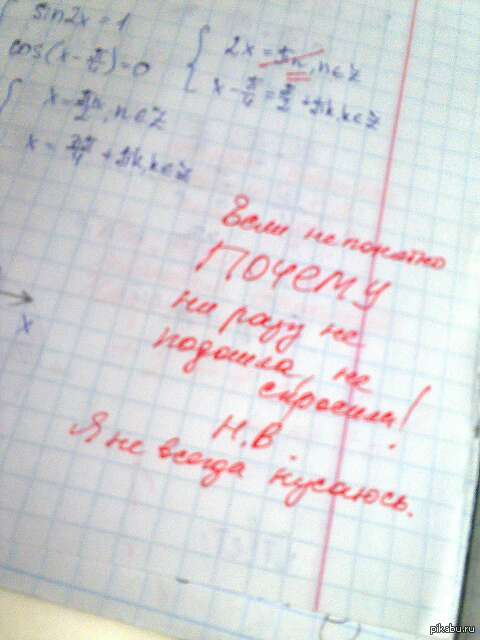 sin2x = 1
cos(x - π/4) = 0
2x = πn, n∈Z
x - π/4 = π/2 + πk, k∈Z
x = πn/2, n∈Z
x = 3π/4 + πk, k∈Z
Если не понятно
ПОЧЕМУ
ни разу не
подошла, не
спросила!
Н.В.
Я не всегда кусаюсь.
x
pikabu.ru